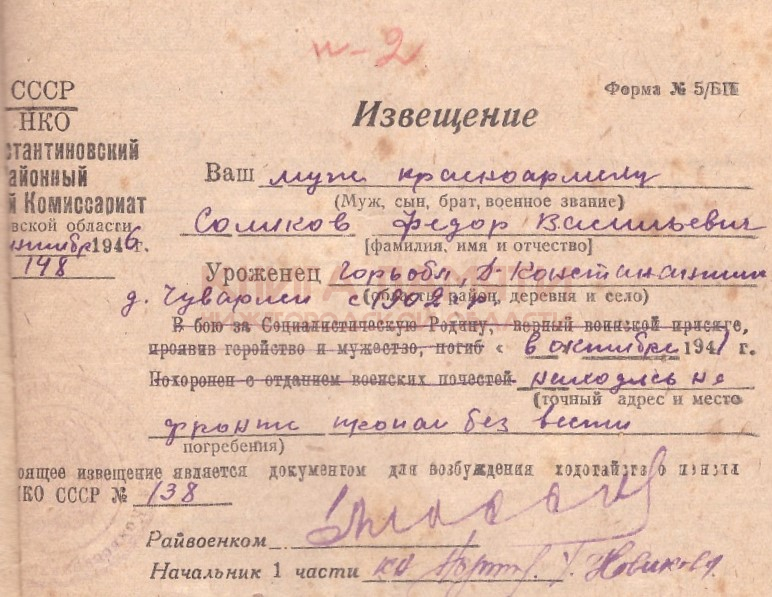 п-2
СССР
НКО
стантиновский
айонный
й Комиссариат
вской области
1946 г.
148
Форма № 5/БП
Извещение
Ваш муж красноармеец
(Муж, сын, брат, военное звание)
Соликов Федор Васильевич
[фамилия, имя и отчество]
Уроженец Горьобл, Д-Константин
(область, район, деревня и село)
д. Чуварлеи с 1902 г.р.
КНИГА ПАМЯТИ
НИЖЕГОРОДСКОЙ ОБЛАСТИ
В бою за Социалистическую Родину, верный воинской присяге,
проявив геройство и мужество, погиб « в октябре 1941 г.
Похоронен с отданием воинских почестей находясь на
(точный адрес и место
фронте пропал без вести
погребения)
оящее извещение является документом для возбуждения ходотайс о пенси
НКО СССР № 138
Райвоенком
Начальник 1 части Новикова